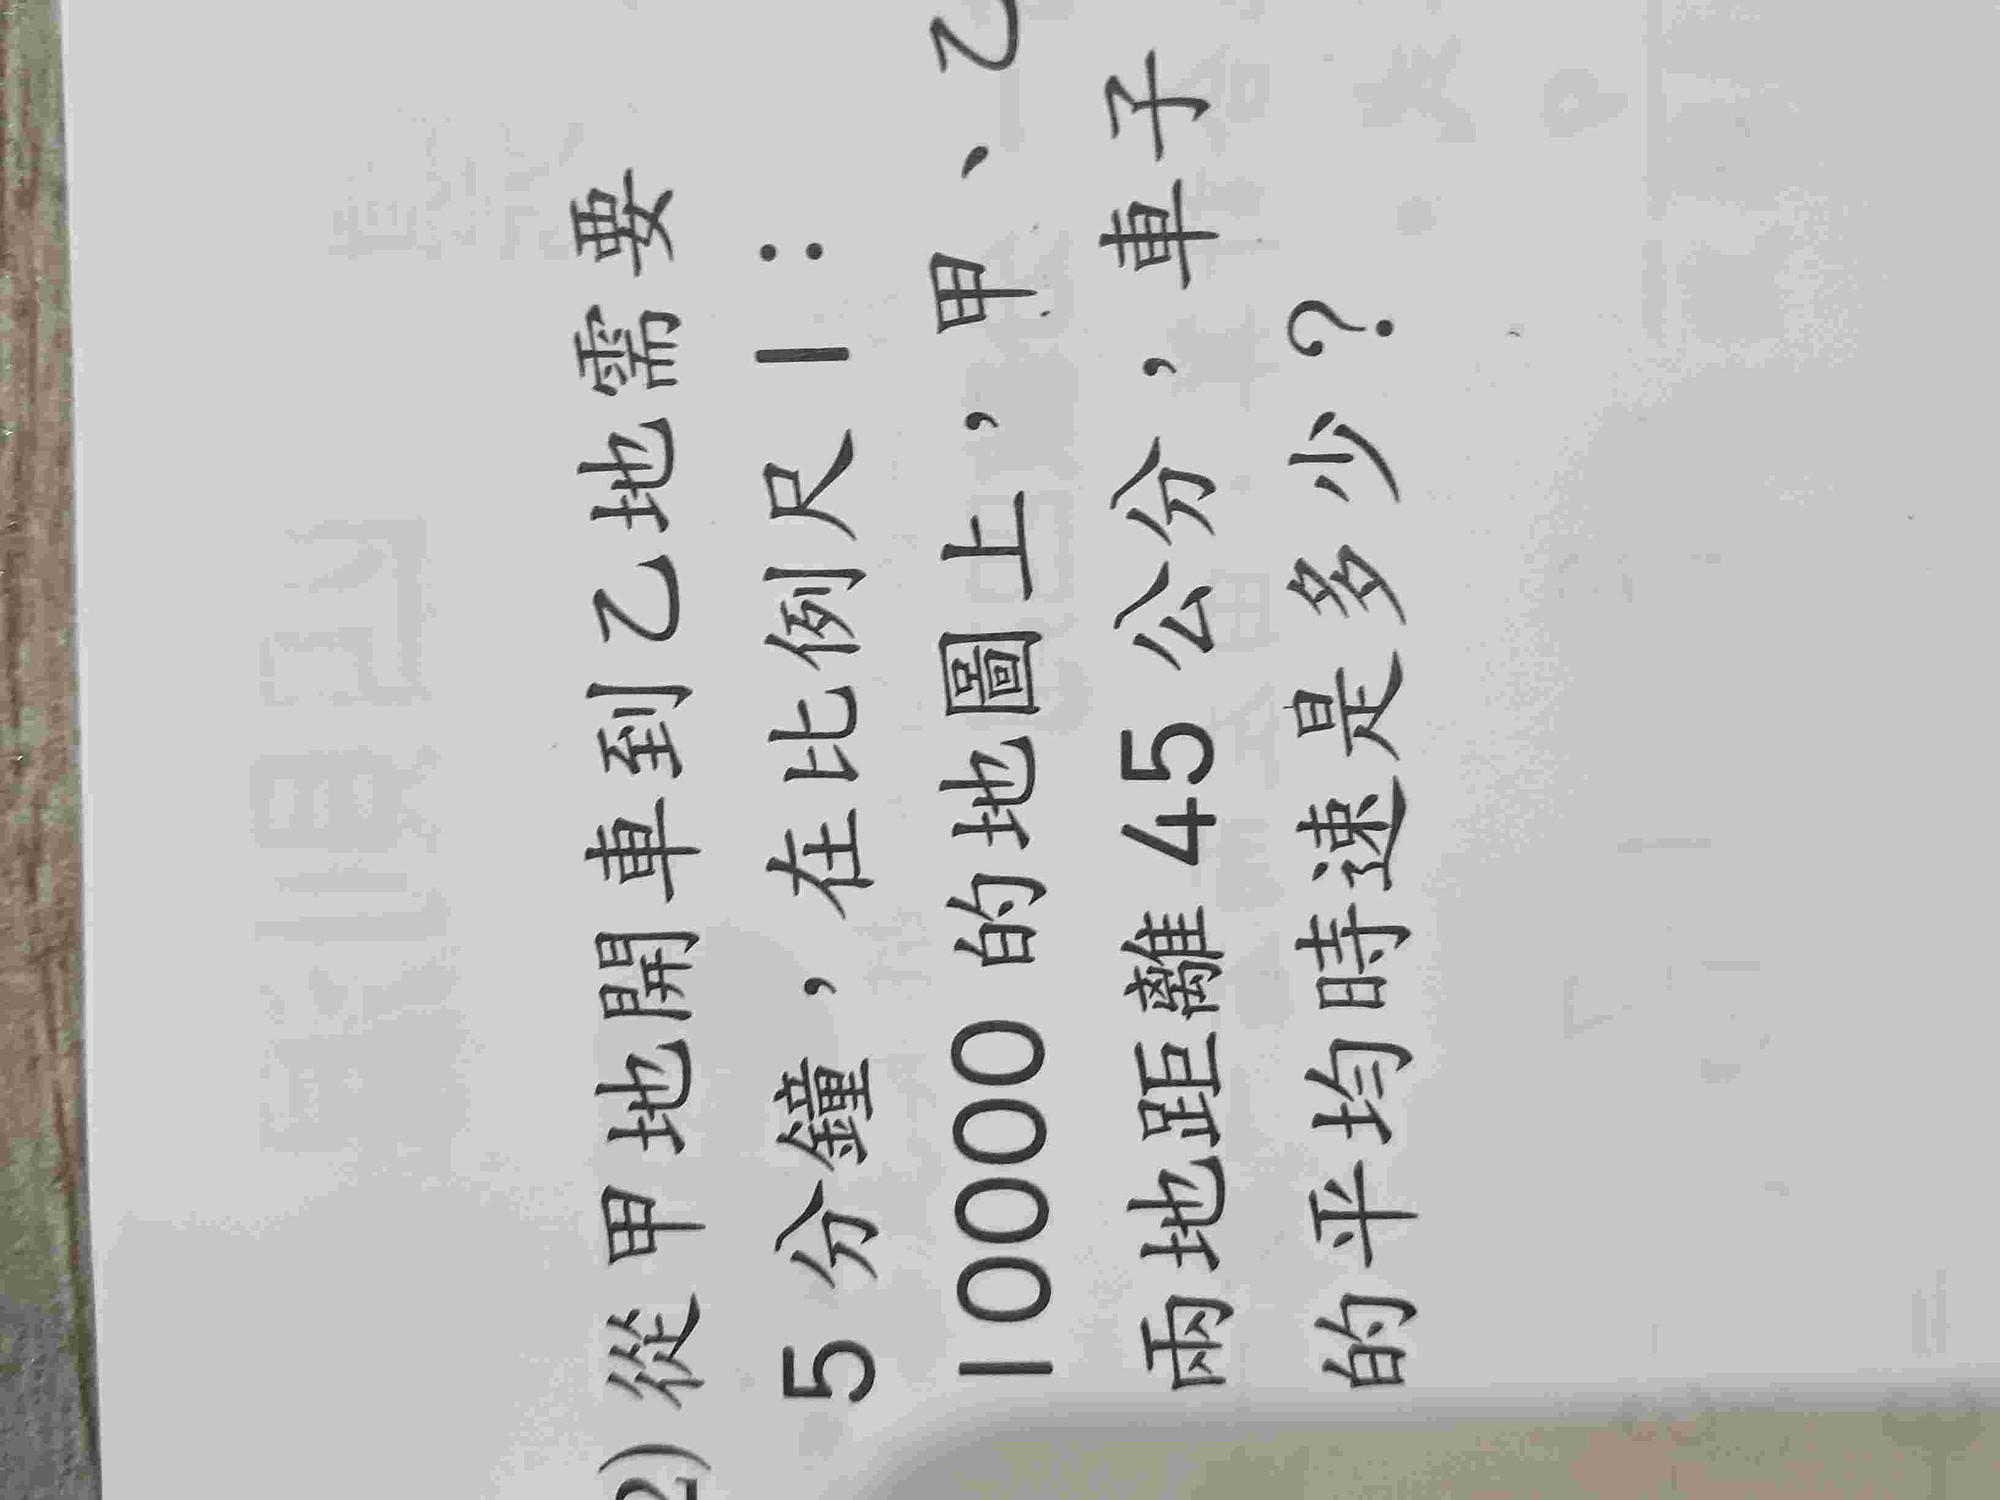 2) 從甲地開車到乙地需要
5 分鐘，在比例尺 1：
10000 的地圖上，甲、乙
兩地距離 45 公分，車子
的平均時速是多少？